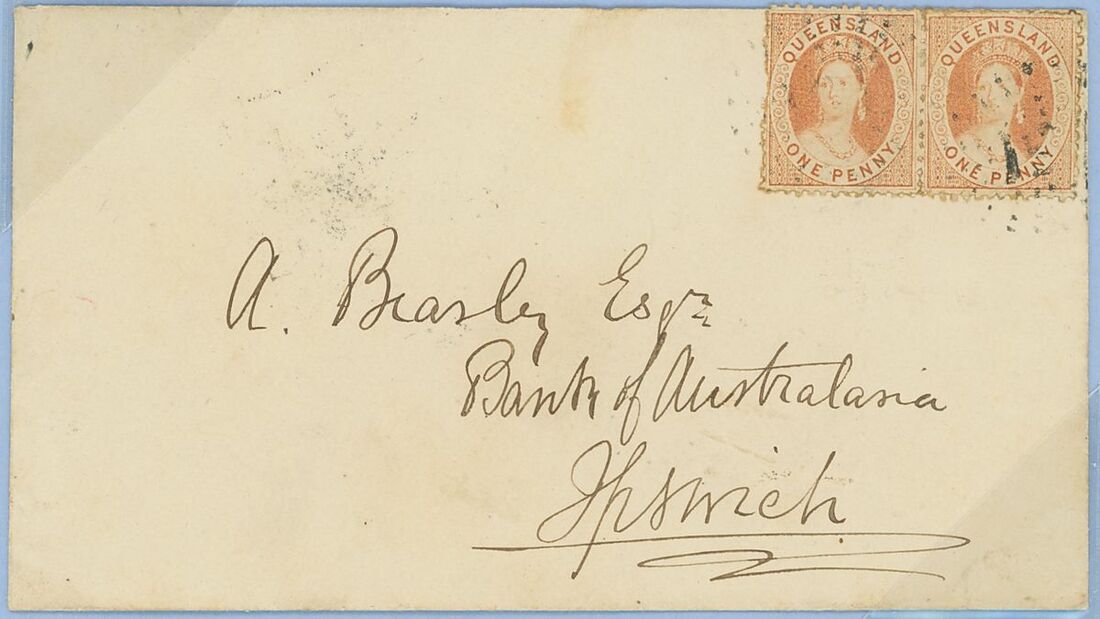 QUEENSLAND
ONE PENNY
QUEENSLAND
ONE PENNY
A. Beasley Esqr
Bank of Australasia
Ipswich